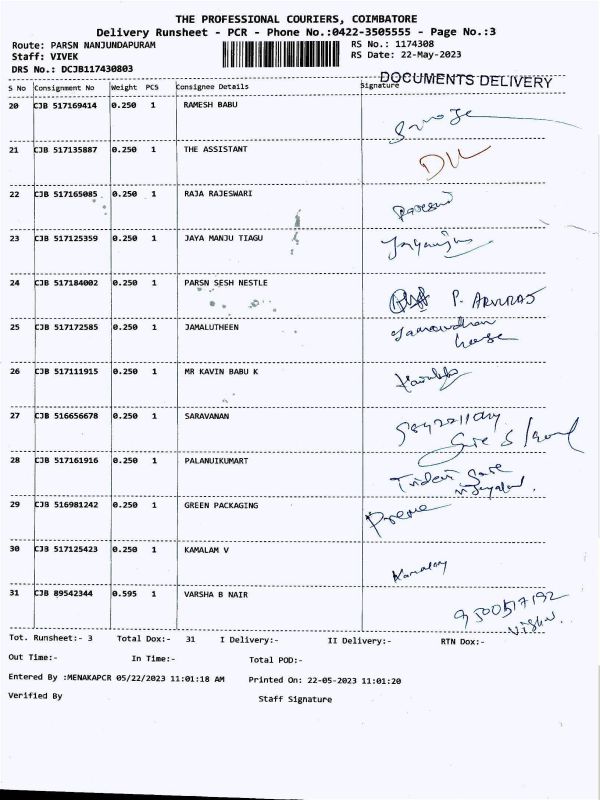 THE PROFESSIONAL COURIERS, COIMBATORE
Delivery Runsheet - PCR - Phone No.:0422-3505555 - Page No.:3
Route: PARSN NANJUNDAPURAM RS No.: 1174308
Staff: VIVEK RS Date: 22-May-2023
DRS No.: DCJB117430803
DOCUMENTS DELIVERY
S No Consignment No Weight PCS Consignee Details Signature
20 CJB 517169414 0.250 1 RAMESH BABU
21 CJB 517135887 0.250 1 THE ASSISTANT
22 CJB 517165085 0.250 1 RAJA RAJESWARI
23 CJB 517125359 0.250 1 JAYA MANJU TIAGU
24 CJB 517184002 0.250 1 PARSN SESH NESTLE P. ARVIRAJ
25 CJB 517172585 0.250 1 JAMALUTHEEN
26 CJB 517111915 0.250 1 MR KAVIN BABU K
27 CJB 516656678 0.250 1 SARAVANAN
28 CJB 517161916 0.250 1 PALANUIKUMART
29 CJB 516981242 0.250 1 GREEN PACKAGING
30 CJB 517125423 0.250 1 KAMALAM V
31 CJB 89542344 0.595 1 VARSHA B NAIR 9500517192
Tot. Runsheet:- 3 Total Dox:- 31 I Delivery:- II Delivery:- RTN Dox:-
Out Time:- In Time:- Total POD:-
Entered By :MENAKAPCR 05/22/2023 11:01:18 AM Printed On: 22-05-2023 11:01:20
Verified By Staff Signature